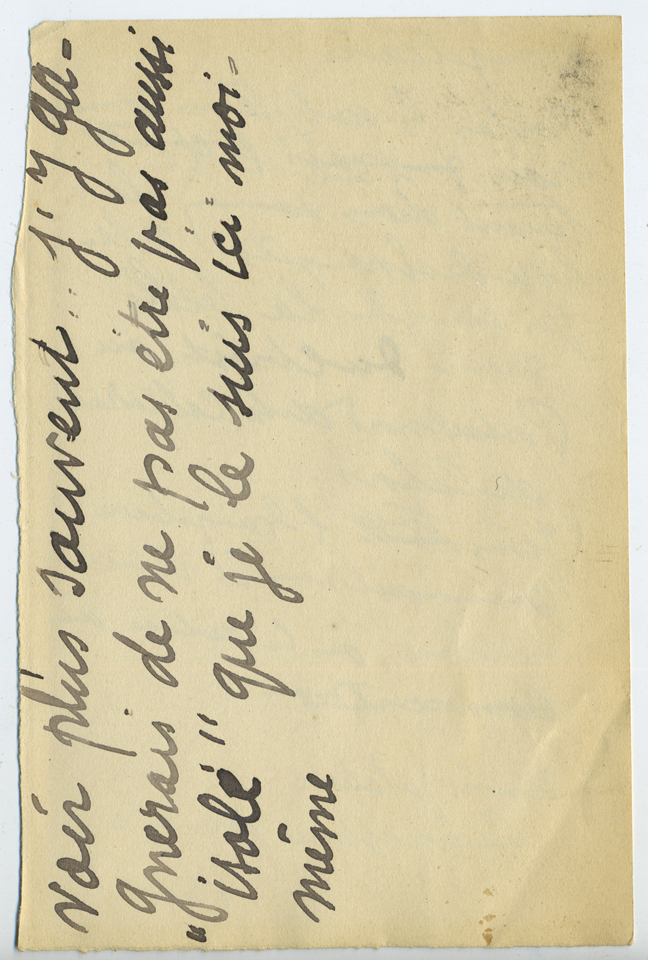 voir plus souvent. j'y ga-
gnerais de ne pas être pas aussi
"isolé" que je le suis ici moi-
même